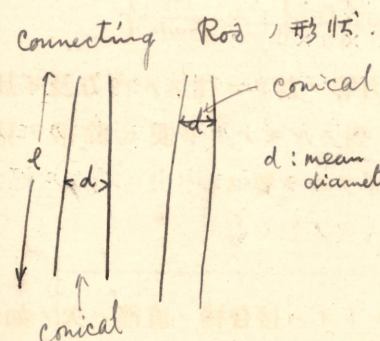 Connecting Rod ノ形状.
conical
d
l
d
d : mean
diamet
conical